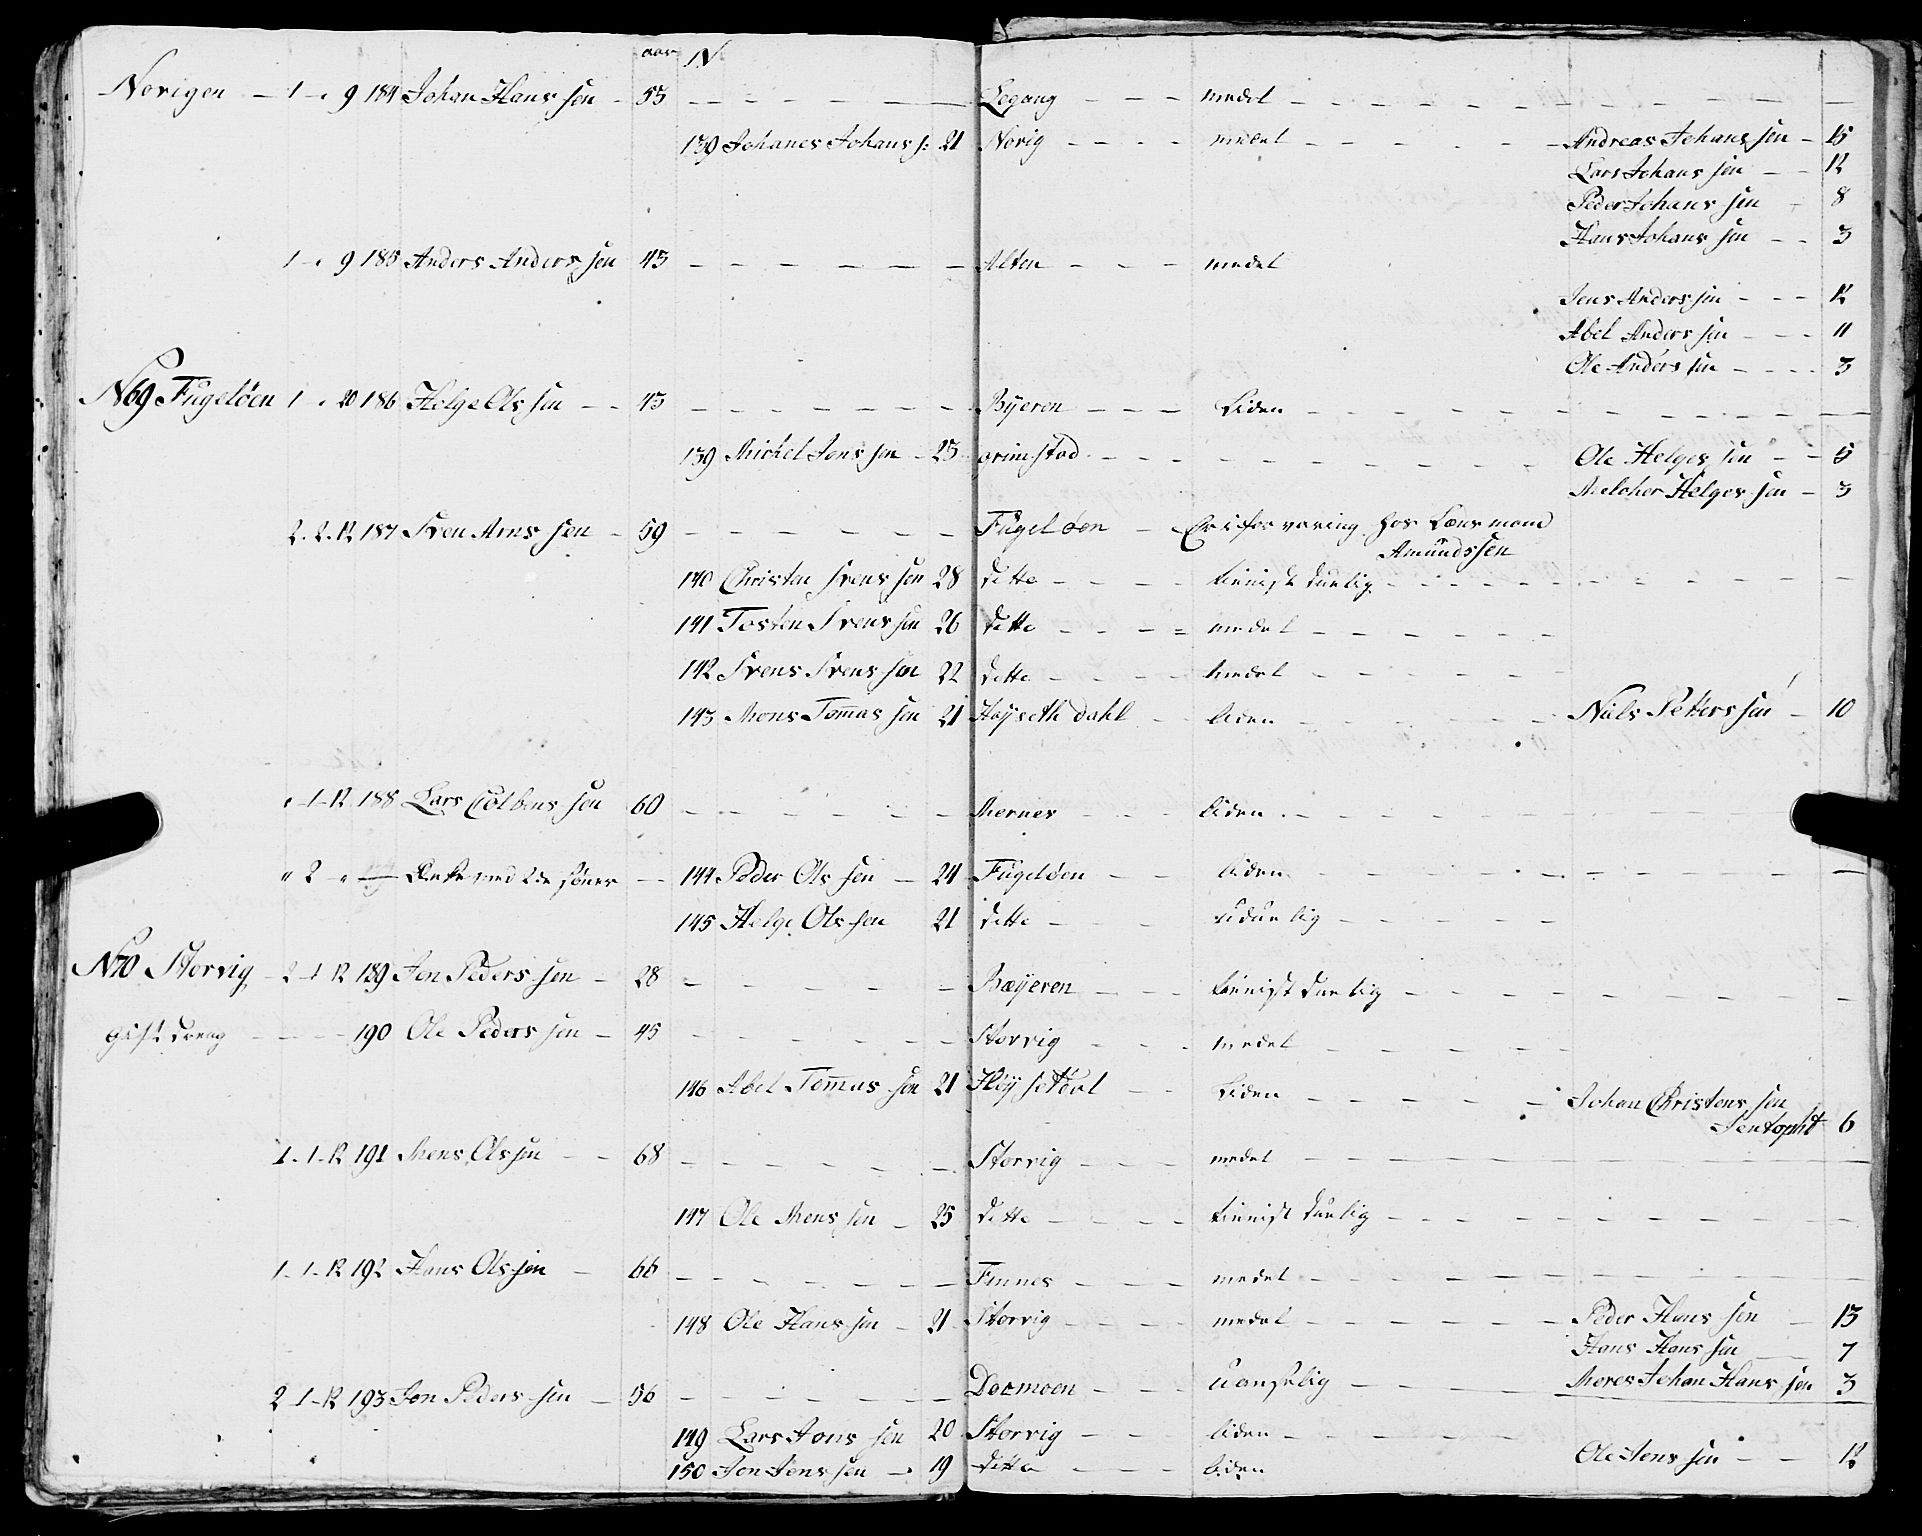 aar N
Norigen - 1 - 9 184 Johan Hans sen - 55 - Legang - medel
139 Johanes Johans s: 21 Norig - medel - Andreas Johans sen - 15
Lars Johans sen - 12
Peder Johans sen - 8
Hans Johans sen - 3
1 - 9 185 Anders Anders sen 43 - Alten - medel
Jens Anders sen - 12
Abel Anders sen - 11
Ole Anders sen - 3
N69 Fugelöen 1 - 20 186 Helge Ols sen - 43 - Byeren - Liden
139 Michel Jens sen - 23 grimstad - Ole Helges sen - 5
Melcher Helges sen - 3
2 - 2 - 12 187 Sven Arns sen - 59 - Fugelöen - Er i forvaring hos Lens mand
Amundssen
140 Christen Svens sen 28 ditto - tienist duelig
141 Tosten Svens sen 26 ditto - medel
142 Svens Svens sen 22 ditto - medel
143 Mons Tomas sen 21 Høyseth dahl - liden - Niels Petters sen - 10
" - 1 - 12 188 Lars Colbens sen 60 - Mernes - liden
" 2 - " - Enke med 2de sønner - 144 Peder Ols sen - 24 Fugelöen - liden
145 Helge Ols sen 21 ditto - uduelig
N70 Storvig - 2 - 1 - 12 189 Jon Peders sen - 28 - Bæyeren - tienist duelig
gift dreng - 190 Ole Peders sen - 45 - Storvig - medel
146 Abel Tomas sen 21 Høysetdal - Liden - Johan Christens sen
6
1 - 1 - 12 191 Mons Ols sen - 68 - Storvig - medel
147 Ole Mons sen - 25 ditto - tienist duelig
1 - 1 - 12 192 Hans Ols sen - 66 - Finnes - medel
148 Ole Hans sen - 21 Storvig - medel - Peder Hans sen - 13
Hans Hans sen - 7
Johan Hans sen 3
2 - 1 - 12 193 Jon Peders sen - 56 - Docmoen - uanselig
149 Lars Jons sen 20 Storvig - liden
Ole Jens sen - 12
150 Jon Jens sen - 19 ditto - liden